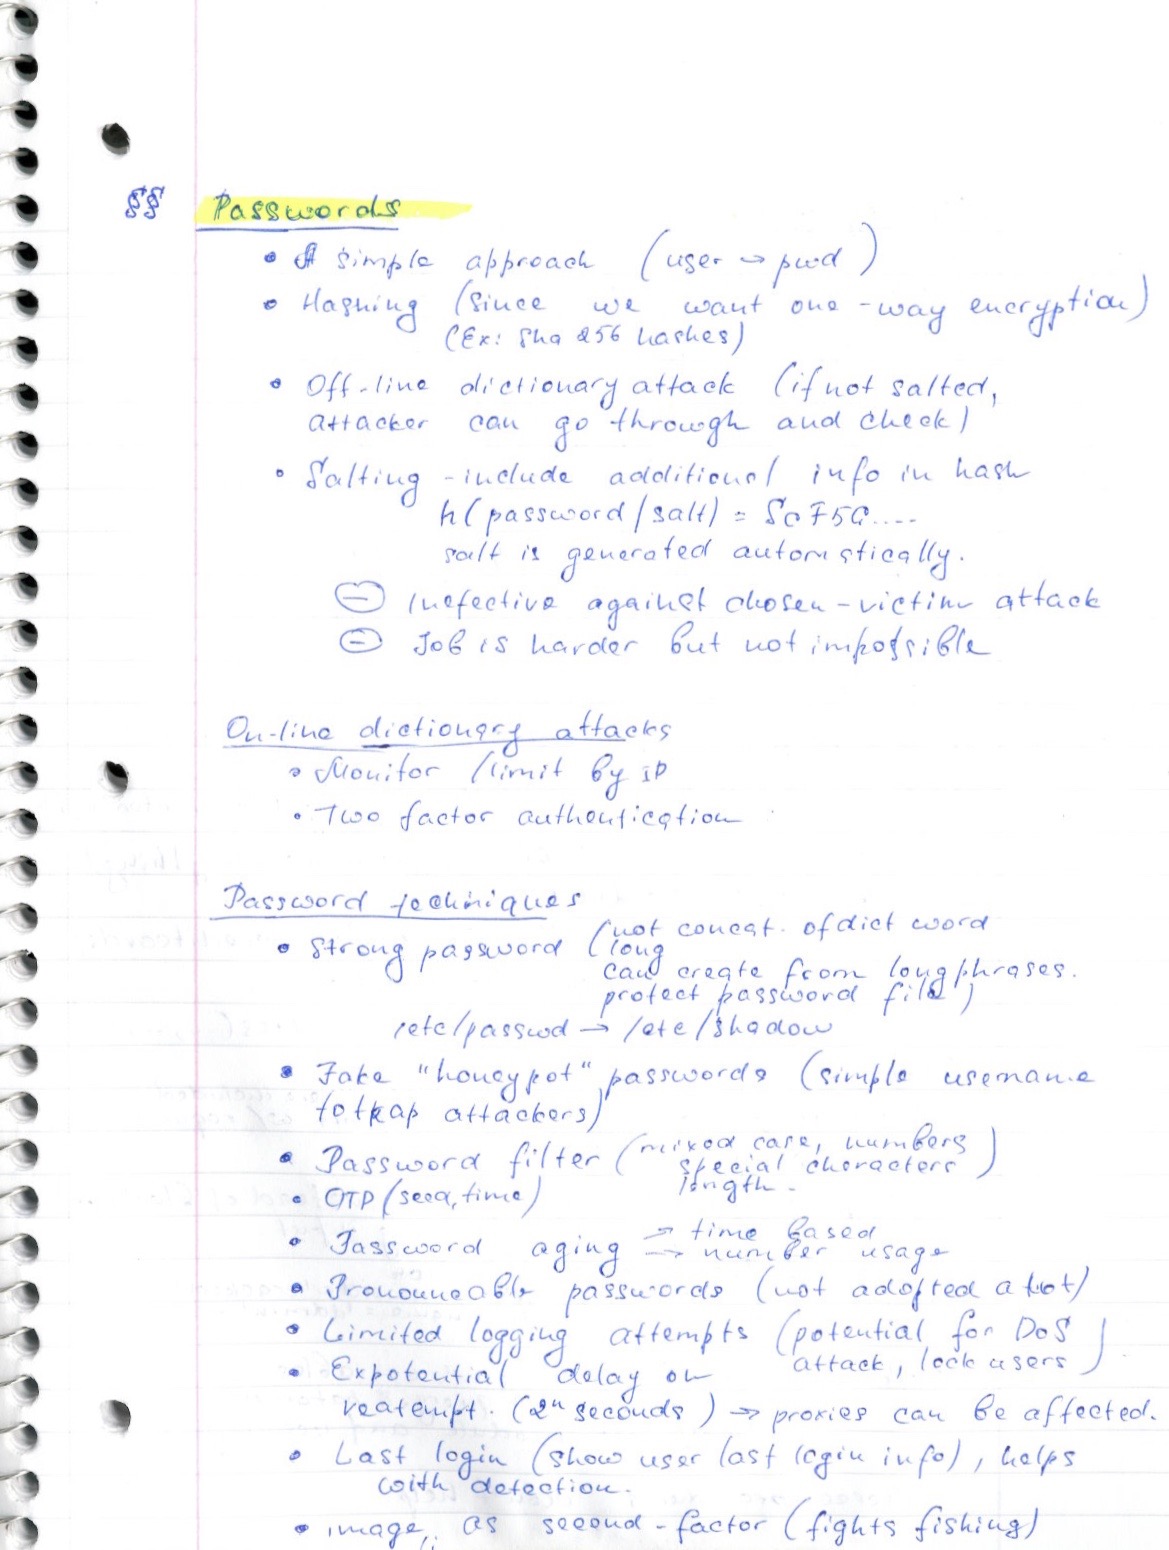 §§ Passwords
• A simple approach (user → pwd)
• Hashing (since we want one-way encryption)
(Ex: Sha 256 hashes)
• Off-line dictionary attack (if not salted,
attacker can go through and check)
• Salting - include additional info in hash
h(password/salt) = ScF5G....
salt is generated automatically.
⊖ Inefective against chosen-victim attack
⊖ Job is harder but not impossible
On-line dictionary attacks
• Monitor /limit by IP
• Two factor authentication
Password techniques
• Strong password (not concat. of dict word
long
can create from long phrases.
protect password file)
/etc/passwd → /etc/shadow
• Fake "honeypot" passwords (simple username
to trap attackers)
• Password filter (mixed case, numbers
special characters)
length.
• OTP (seed, time)
• Password aging → time based
→ number usage
• Pronounneable passwords (not adopted a lot)
• Limited logging attempts (potential for DoS
attack, lock users)
• Expotential delay on
reatempt. (2ⁿ seconds) → proxies can be affected.
• Last login (show user last login info), helps
with detection.
• image, as second-factor (fights fishing)